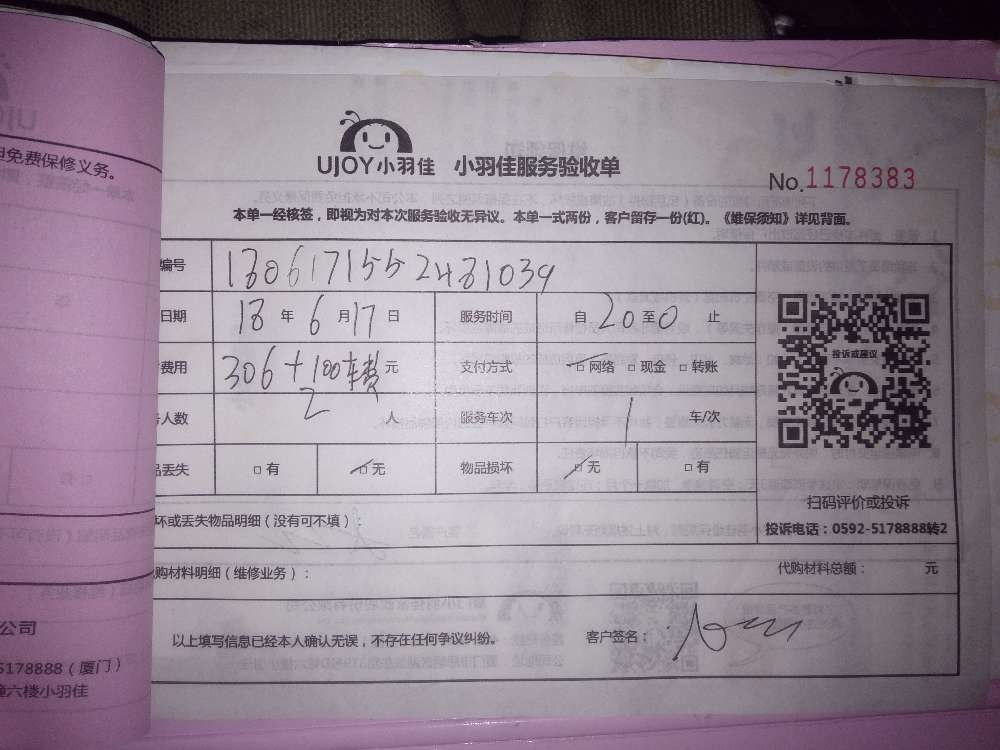 免费保修义务。
UJOY小羽佳 小羽佳服务验收单
No.1178383
本单一经核签，即视为对本次服务验收无异议。本单一式两份，客户留存一份(红)。《维保须知》详见背面。
编号 1806171552481039
日期 18 年 6 月 17 日 服务时间 自 20 至 0 止
费用 306+100车费 元 支付方式 □网络 □现金 □转账
人数 2 人 服务车次 1 车/次
丢失 □有 □无 物品损坏 □无 □有
投诉或建议
扫码评价或投诉
投诉电话：0592-5178888转2
坏或丢失物品明细（没有可不填）：
购材料明细（维修业务）： 代购材料总额： 元
以上填写信息已经本人确认无误，不存在任何争议纠纷。 客户签名：
公司
5178888（厦门）
六楼小羽佳